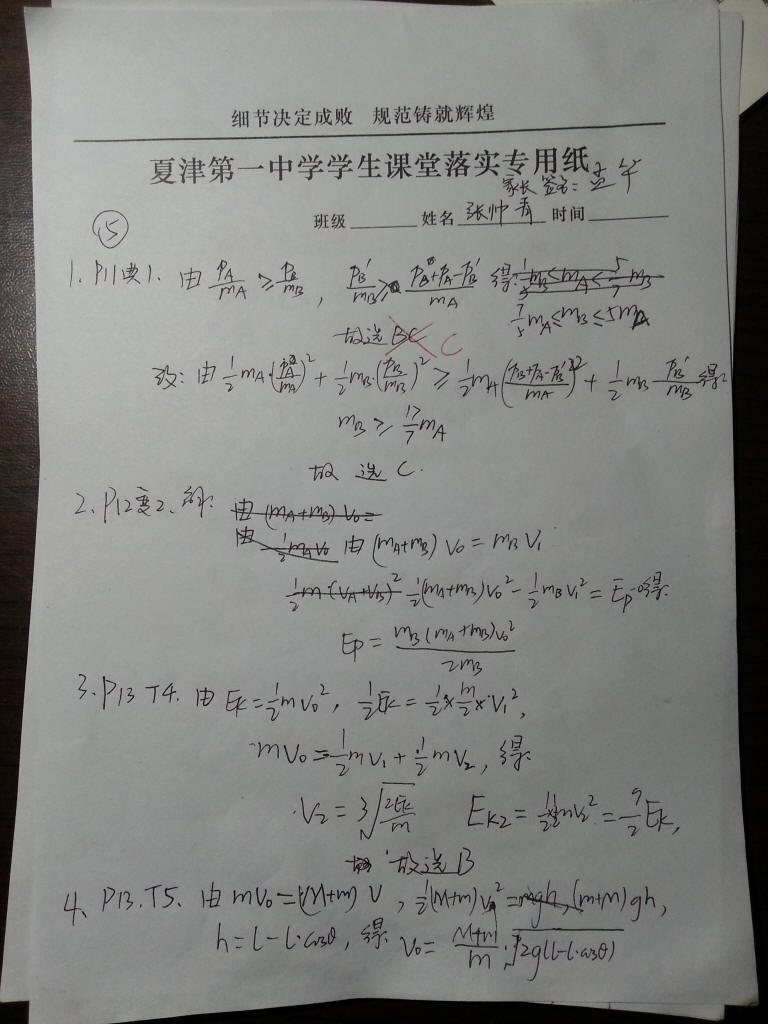 细节决定成败 规范铸就辉煌
夏津第一中学学生课堂落实专用纸
家长签名：
班级 姓名 张帅青 时间
⑮
1、P11典1. 由 p_A/m_A ≥ p_B/m_B , p_B'/m_B ≥ (p_B+p_A-p_B')/m_A 得:
7/5 m_A ≤ m_B ≤ 5m_A
故选BC C
改: 由 1/2 m_A·(p_A/m_A)² + 1/2 m_B·(p_B/m_B)² ≥ 1/2 m_A((p_B+p_A-p_B')/m_A)² + 1/2 m_B p_B'/m_B 得:
m_B ≥ 17/7 m_A
故 选 C.
2、P12变2、解: 由 (m_A+m_B) V₀ =
由 1/2 m_A V₀ 由 (m_A+m_B) V₀ = m_B V₁
1/2 m·(V_A+V_B)² 1/2(m_A+m_B)V₀² - 1/2 m_B V₁² = E_p 得:
E_p = m_B(m_A+m_B)V₀² / 2m_B
3、P13 T4. 由 E_k = 1/2 mV₀², 1/2 E_k = 1/2 × m/2 × V₁²,
mV₀ = 1/2 mV₁ + 1/2 mV₂, 得:
V₂ = 3√(2E_k/m) E_K2 = 1/2 × 1/2 mV₂² = 9/2 E_k,
故选B
4、P13.T5. 由 mV₀ = (M+m) V , 1/2(M+m)V² = mgh, (m+M)gh,
h = l - l·cosθ, 得: V₀ = (M+m)/m · √(2g(l-l·cosθ))